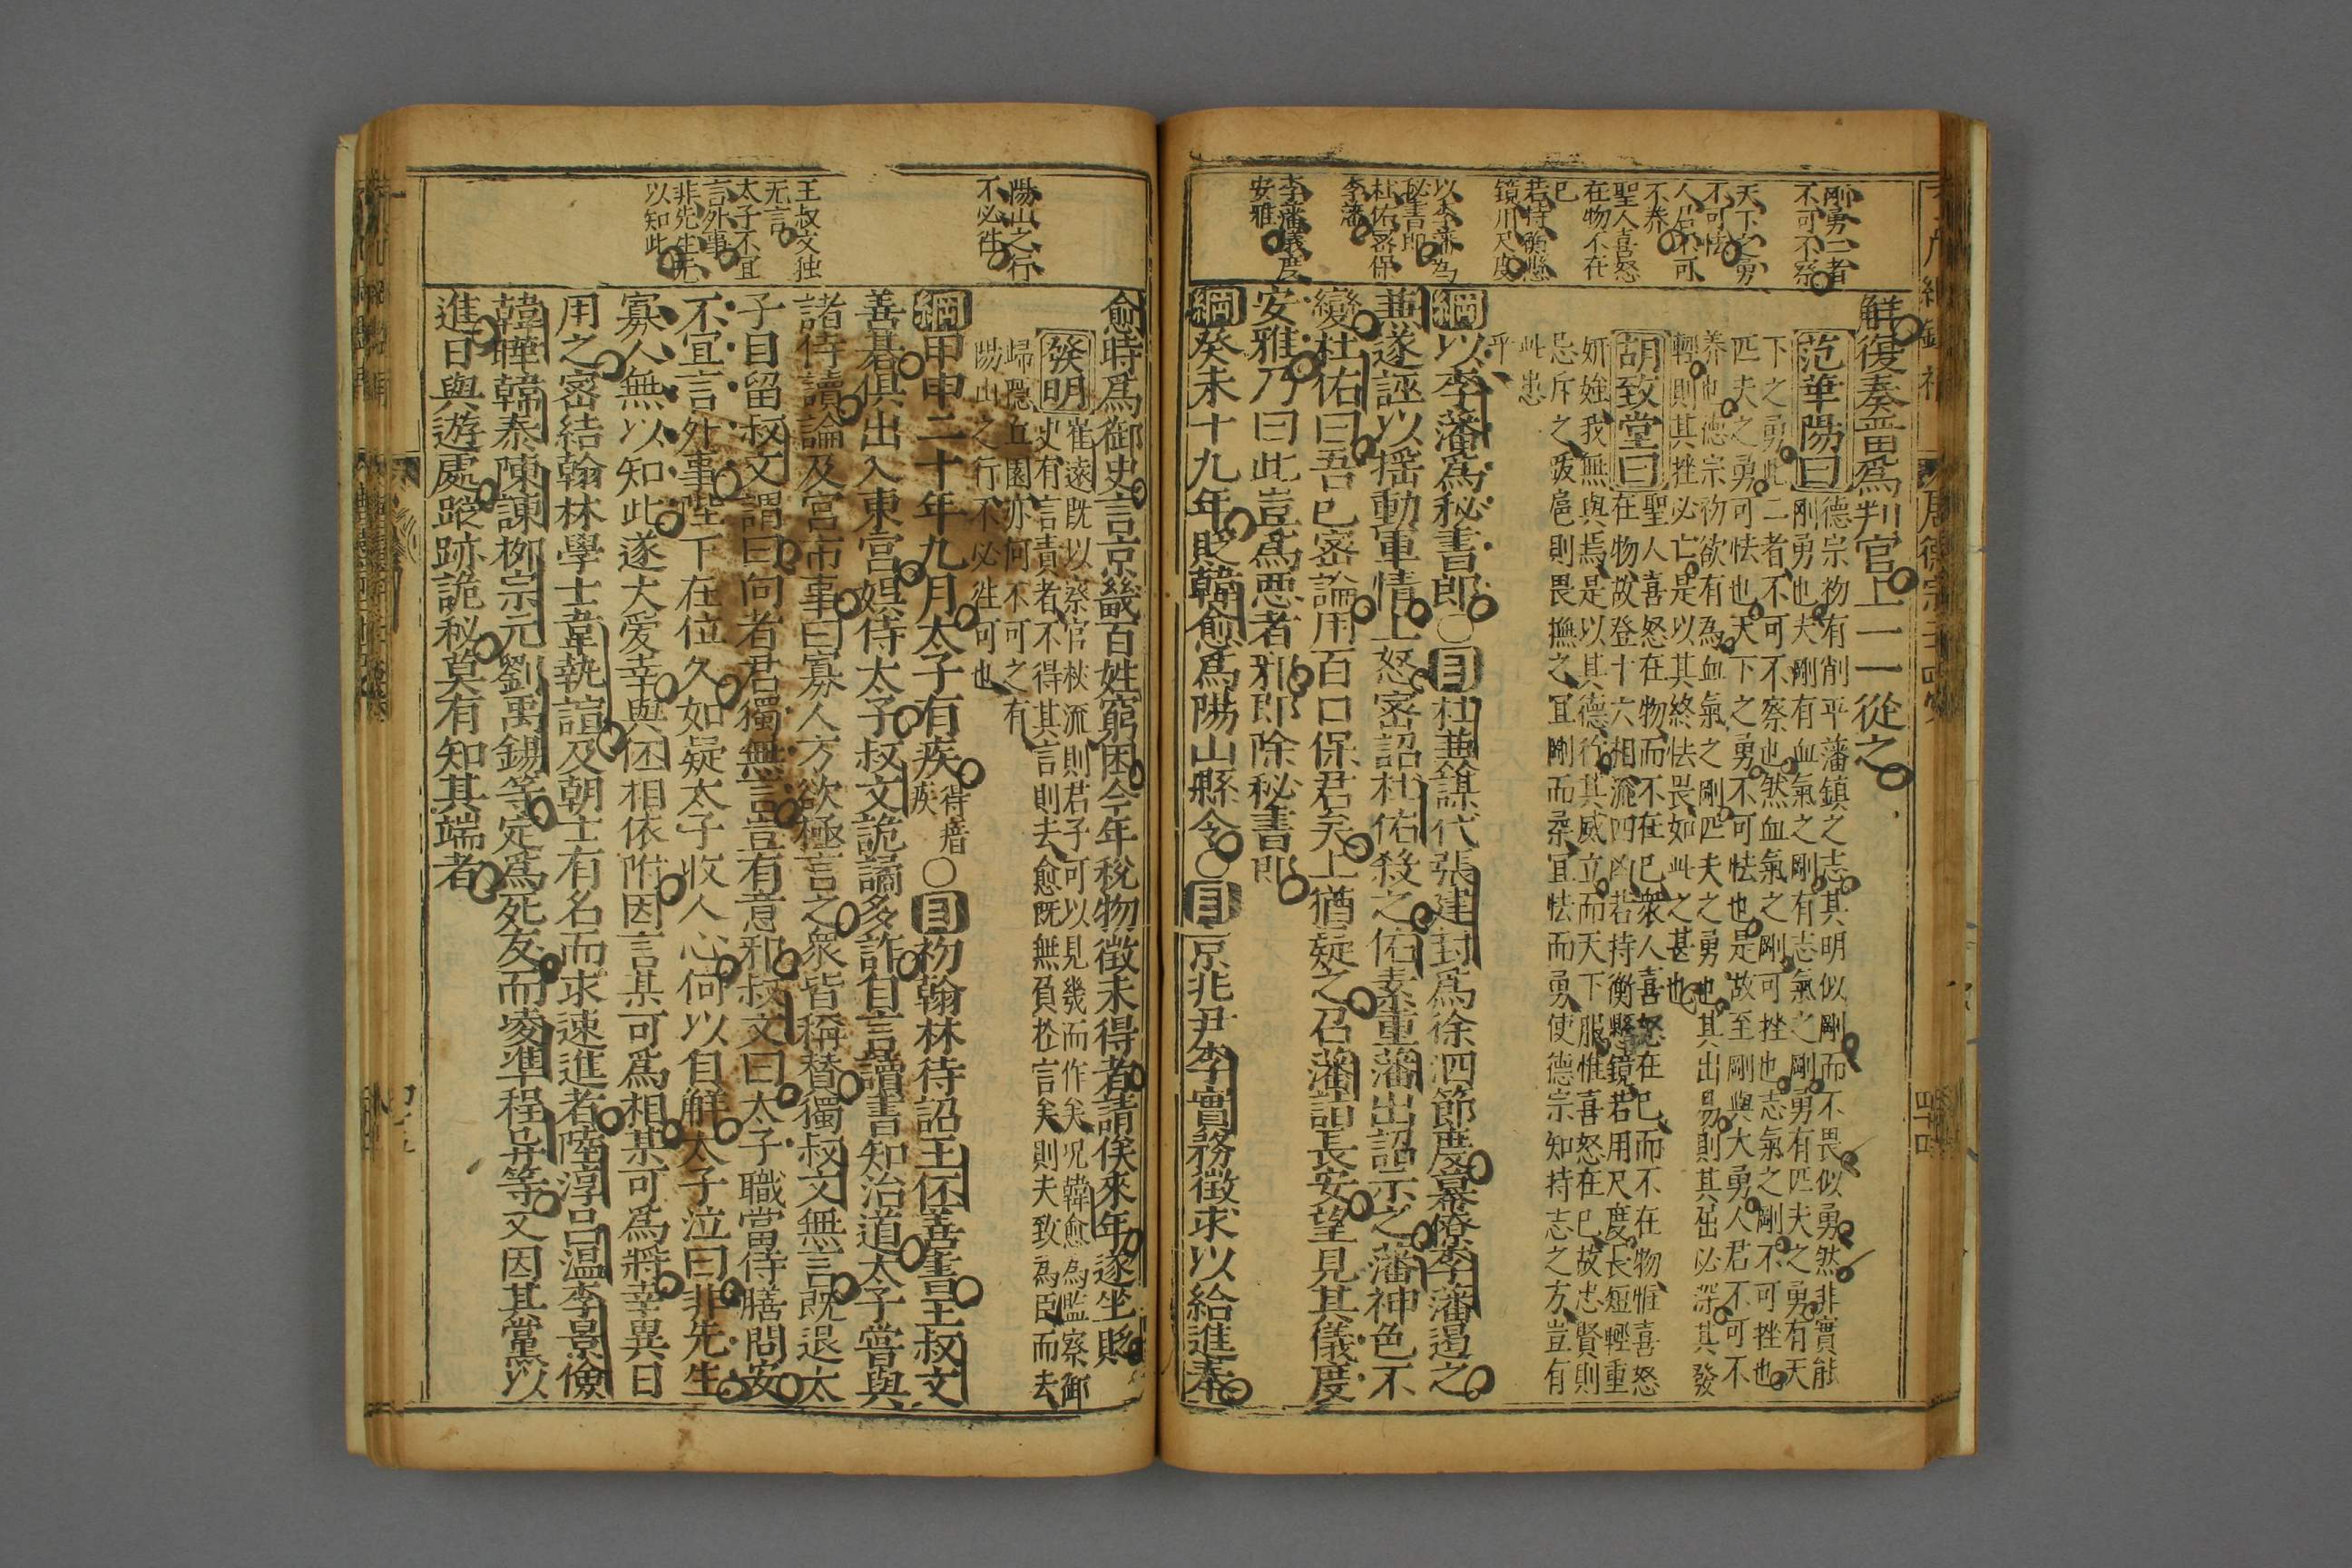 剛勇二者
不可不察
天下之勇
不可怯
人君不可
不養
聖人喜怒
在物不在
已
若持衡懸
鏡用尺度
以李藩為
秘書郎
杜佑密保
李藩
李藩儀度
安雅
解復奏晋爲判官上一一從之
范華陽曰
德宗初有削平藩鎮之志其明似剛而不畏似勇然非實能
剛勇也夫剛有血氣之剛有志氣之剛勇有匹夫之勇有天
下之勇此二者不可不察也然血氣之剛可挫也志氣之剛不可挫也
匹夫之勇可怯也天下之勇不可怯也是故至剛與大勇人君不可不
養也德宗初欲有為血氣之剛匹夫之勇也其出易則其發
輕則其挫必亡是以其終怯畏如此之甚也
胡致堂曰
聖人喜怒在物而不在已衆人喜怒在已而不在物惟喜怒
在物故登十六相流四凶若持衡懸鏡若用尺度長短輕重
妍媸我無與焉是以其德行其威立而天下服惟喜怒在已故忠賢則
忌斥之跋扈則畏撫之宜剛而柔宜怯而勇使德宗知持志之方豈有
此患
乎
綱以李藩爲秘書郎○目杜兼謀代張建封爲徐泗節度幕僚李藩遏之
兼遂誣以揺動軍情上怒密詔杜佑殺之佑素重藩出詔示之藩神色不
變杜佑曰吾已密論用百口保君矣上猶疑之召藩詣長安望見其儀度
安雅乃曰此豈爲悪者邪即除秘書郎
綱癸未十九年貶韓愈爲陽山縣令○目京兆尹李實務徴求以給進奉
陽山之行
不必徃
王叔文独
无言
太子不宜
言外事
非先生无
以知此
愈時爲御史言京畿百姓窮困今年税物徴未得者請俟來年遂坐貶
發明
崔遠既以察官被流則君子可以見幾而作矣况韓愈為監察御
史有言責者不得其言則去愈既無負於言矣則夫致為臣而去
歸隱丘園亦何不可之有
陽山之行不必徃可也
綱甲申二十年九月太子有疾得瘖
疾○目初翰林待詔王伾善書王叔文
善碁倶出入東宮娯侍太子叔文詭譎多詐自言讀書知治道太子嘗與
諸侍讀論及宮市事曰寡人方欲極言之衆皆稱替獨叔文無言既退太
子自留叔文謂曰向者君獨無言豈有意邪叔文曰太子職當侍膳問安
不宜言外事陛下在位久如疑太子收人心何以自解太子泣曰非先生
寡人無以知此遂大愛幸與伾相依附因言某可爲相某可爲將幸異日
用之密結翰林學士韋執誼及朝士有名而求速進者陸淳呂温李景儉
韓曄韓泰陳諌栁宗元劉禹錫等定爲死友而凌準程异等又因其黨以
進日與遊處蹤跡詭秘莫有知其端者